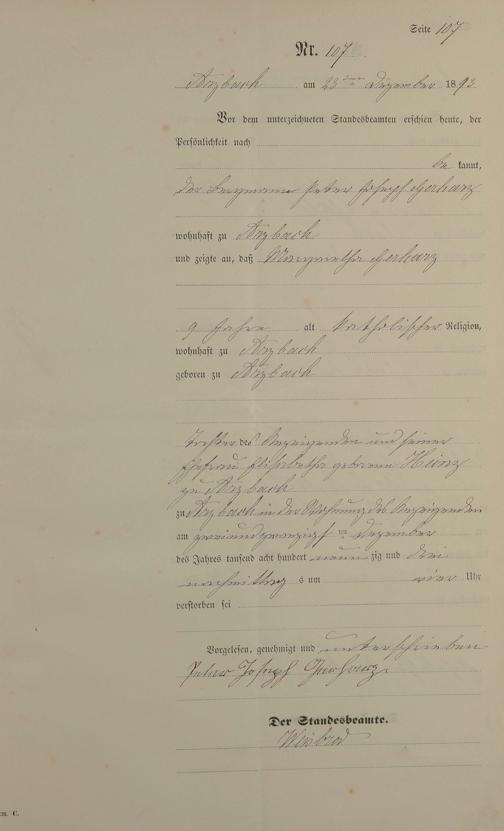 Seite 107
Nr. 107.
Arzbach am 23 ten Dezember 1893
Vor dem unterzeichneten Standesbeamten erschien heute, der
Persönlichkeit nach
be kannt,
der Bergmann Peter Joseph Gerharz
wohnhaft zu Arzbach
und zeigte an, daß Margaretha Gerharz
9 Jahre alt katholischer Religion,
wohnhaft zu Arzbach
geboren zu Arzbach
Tochter des Anzeigenden und seiner
Ehefrau Elisabetha geborene Heinz
zu Arzbach
zu Arzbach in der Wohnung des Anzeigenden
am zweiundzwanzigsten Dezember
des Jahres tausend acht hundert neun zig und drei
nachmittag s um vier Uhr
verstorben sei
Vorgelesen, genehmigt und unterschrieben
Peter Joseph Gerharz
Der Standesbeamte.
Weisbrod
C.